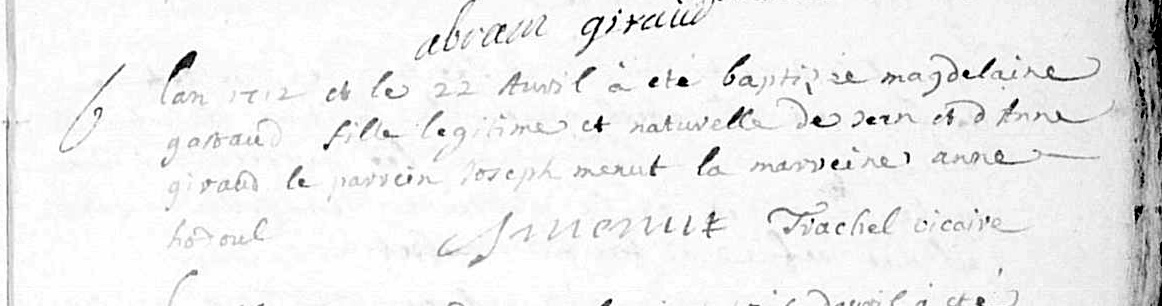 abram giraud
6 lan 1712 et le 22 Avvril à eté baptizée magdelaine
gastaud fille legitime et naturelle de Jean et d Anne
giraud le parrein Joseph menut la marreine anne
hodoul JMenut Trachel vicaire
d'avril à eté